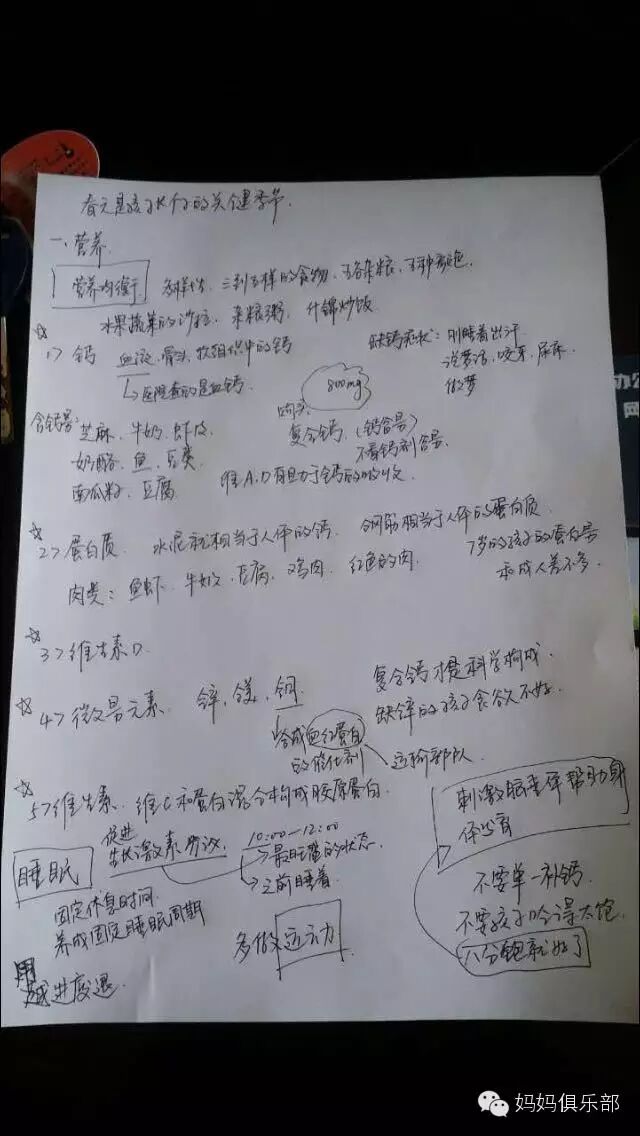 春天是孩子长个的关键季节.
一、营养.
营养均衡 多样性、三到五样的食物、五谷杂粮、五种颜色
水果蔬菜的沙拉、杂粮粥、什锦炒饭
☆
1> 钙 血液、骨头、软组织中的钙
↳医院查的是血钙
缺钙症状：刚睡着出汗
说梦话、咬牙、尿床
做梦
800mg
购买：
复合钙、(钙含量)
不看钙剂含量
含钙量：芝麻、牛奶、虾皮
奶酪、鱼、豆类
南瓜籽、豆腐
维A、D有助于钙的吸收
☆
2> 蛋白质、水泥就相当于人体的钙 钢筋相当于人体的蛋白质
肉类：鱼虾、牛奶、豆腐、鸡肉、红色的肉
7岁的孩子的蛋白量
和成人差不多
☆
3> 维生素D
☆
4> 微量元素 锌、镁、铜
合成血红蛋白
的催化剂
运输部队
复合钙才是科学构成
缺锌的孩子食欲不好
☆
5> 维生素、维C和蛋白混合构成胶原蛋白.
睡眠
促进
生长激素分泌
10:00—12:00
→最旺盛的状态
→之前睡着
固定休息时间
养成固定睡眠周期
多做运动
刺激脑垂体帮助身
体发育
不要单一补钙
不要孩子吃得太饱
八分饱就好了
用
进废退
办公
网
妈妈俱乐部